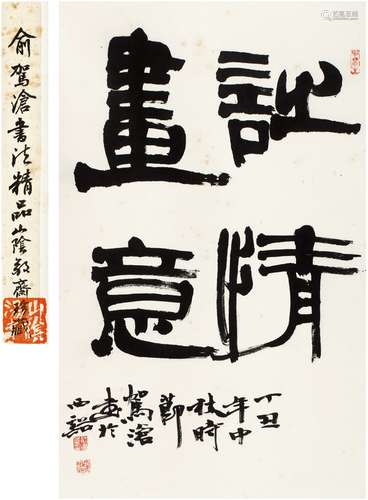 詩情
畫意
丁丑
年中
秋時
節
駕滄
書於
西谿
俞駕滄書法精品山陰齋珍藏
山陰